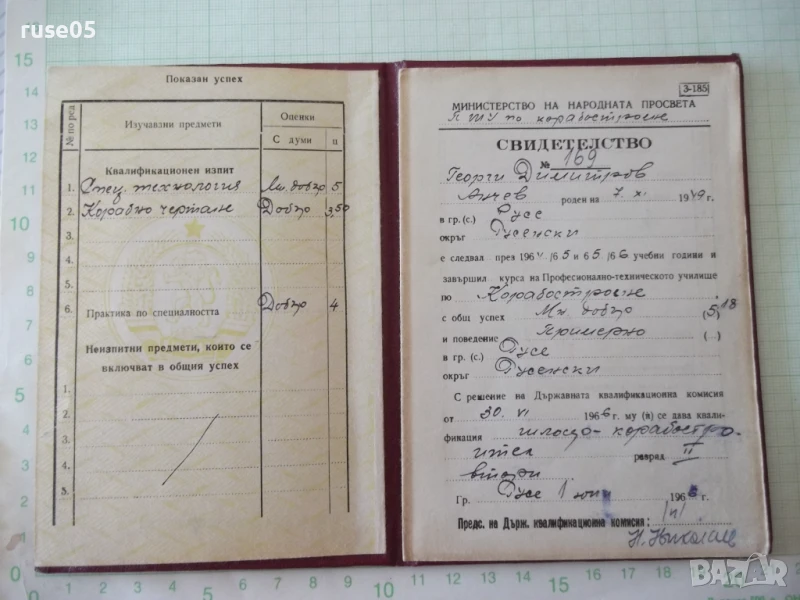 ruse05
Показан успех
№ по ред
Изучавани предмети
Оценки
С думи
ц
Квалификационен изпит
1. Спец. технология Мн. добър 5
2. Корабно чертане Добър 3,50
3.
4.
5.
6. Практика по специалността Добър 4
Неизпитни предмети, които се
включват в общия успех
1.
2.
3.
4.
5.
3-185
МИНИСТЕРСТВО НА НАРОДНАТА ПРОСВЕТА
ПТУ по корабостроене
СВИДЕТЕЛСТВО
№ 169
Георги Димитров
Анчев роден на 7. XI 1949 г.
в гр. (с.) Русе
окръг Русенски
е следвал през 196 /65 и 65/66 учебни години и
завършил курса на Професионално-техническото училище
по Корабостроене
с общ успех Мн. добър (5) 18
и поведение Примерно (...)
в гр. (с.) Русе
окръг Русенски
С решение на Държавната квалификационна комисия
от 30. VI 1966 г. му (и) се дава квали-
фикация шлосер-корабостро-
ител разряд II
втори
Гр. Русе 1 юли 1966 г.
Предс. на Държ. квалификационна комисия: /п/
Н. Николаев
BAZAR
bg